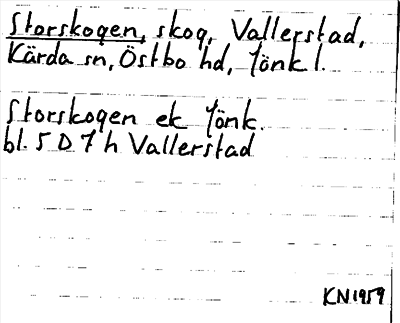 Storskogen, skog, Vallerstad,
Kärda sn, Östbo hd, Jönk l.
Storskogen ek Jönk.
bl. 5 D 7 h Vallerstad
KN1959